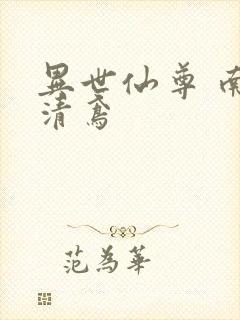 異世仙尊 南
清鳶
范為華